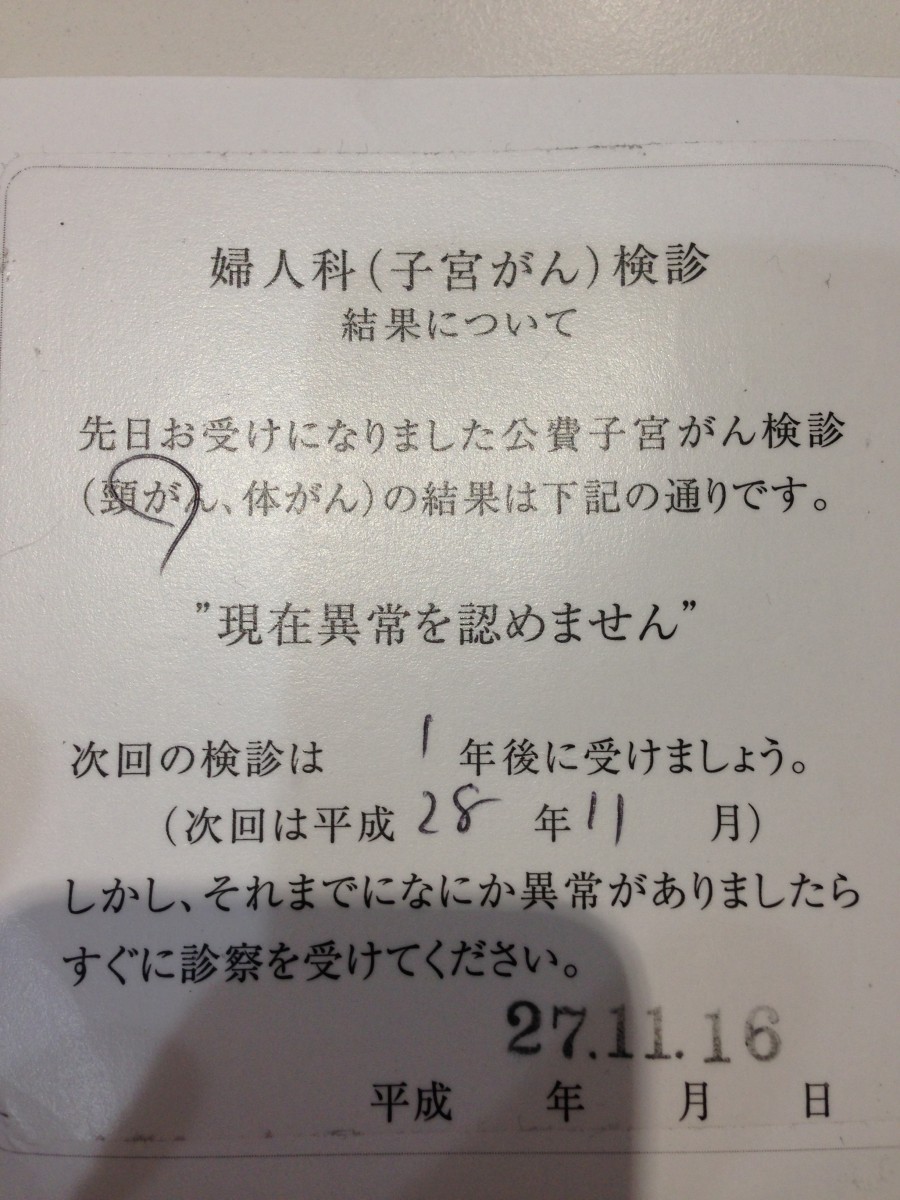 婦人科(子宮がん)検診
結果について
先日お受けになりました公費子宮がん検診
(頸がん、体がん)の結果は下記の通りです。
"現在異常を認めません"
次回の検診は 1 年後に受けましょう。
(次回は平成 28 年 11 月)
しかし、それまでになにか異常がありましたら
すぐに診察を受けてください。
27.11.16
平成 年 月 日